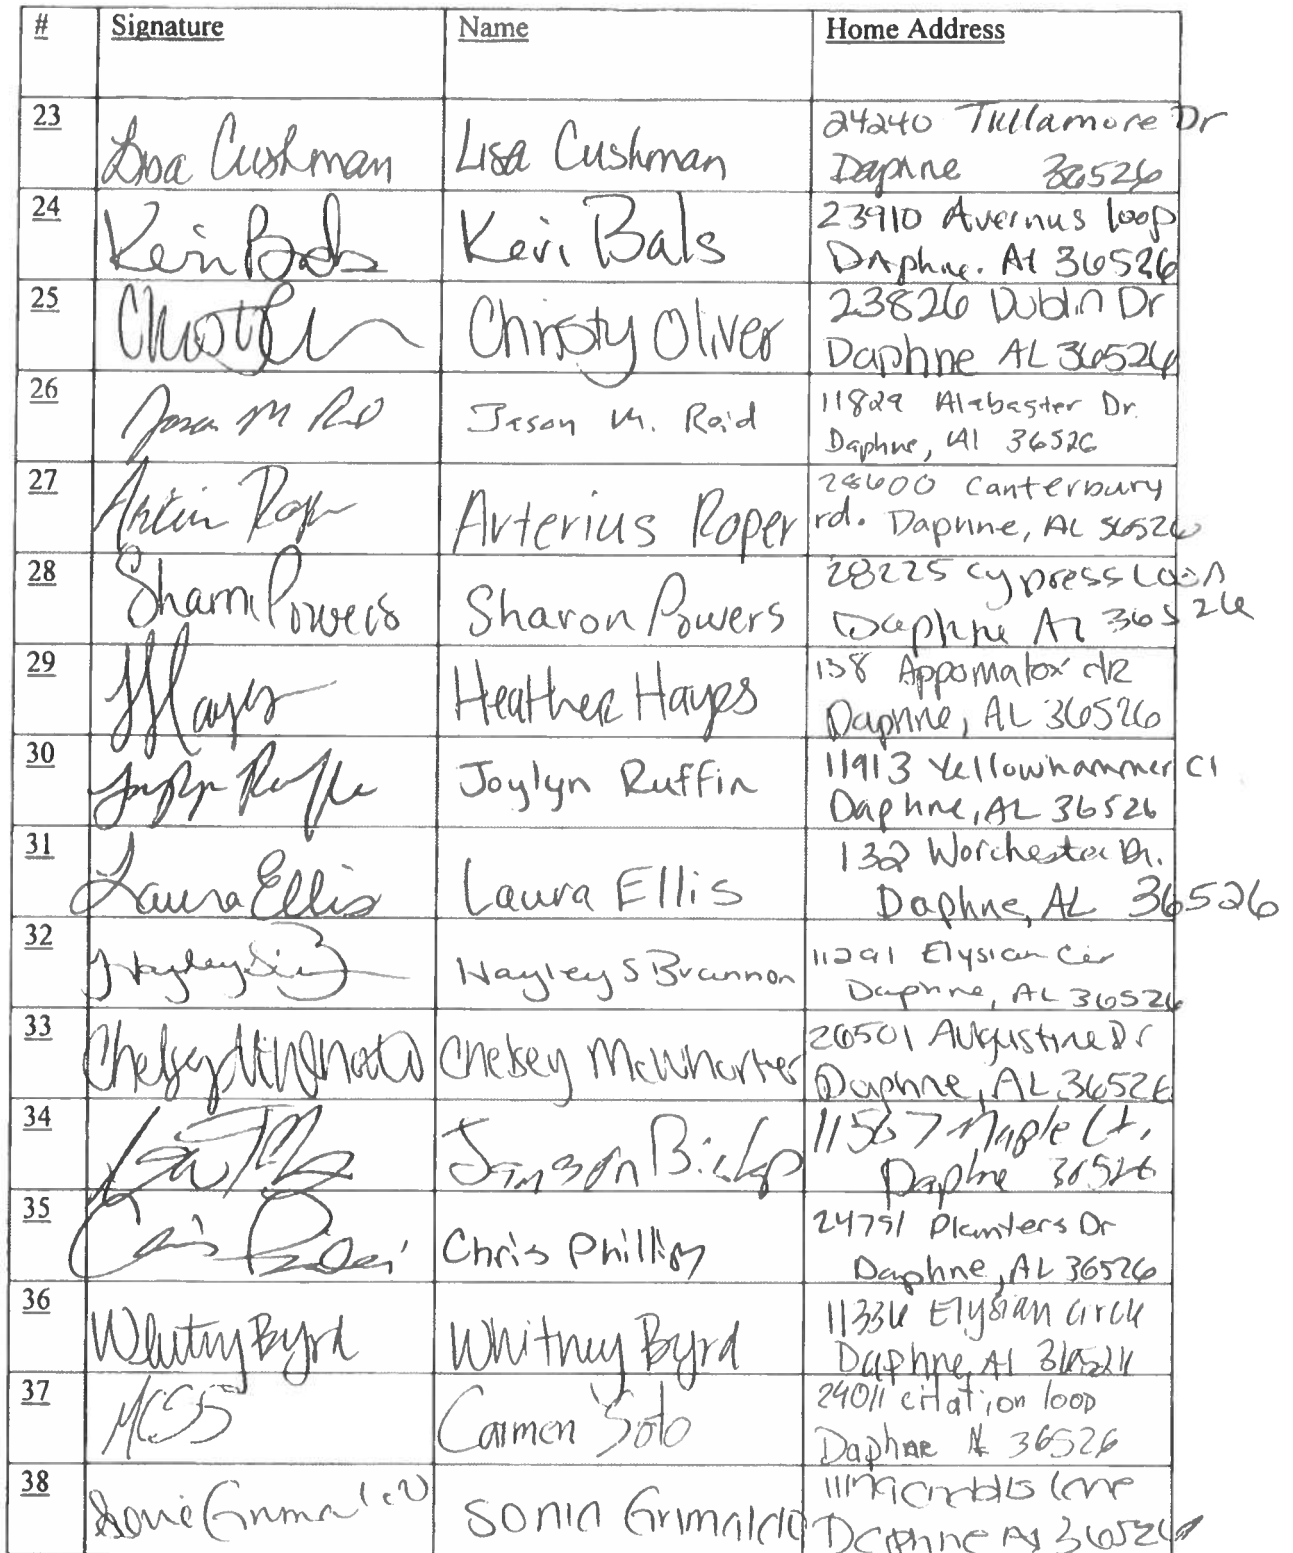 # Signature Name Home Address
23 Lisa Cushman Lisa Cushman 24240 Tullamore Dr
Daphne 36526
24 Keri Bals Keri Bals 23910 Avernus loop
Daphne. Al 36526
25 Christy Oliver 23826 Dublin Dr
Daphne AL 36526
26 Jason M Reid Jason M. Reid 11829 Alabaster Dr.
Daphne, Al 36526
27 Arterius Roper 28600 Canterbury
rd. Daphne, AL 36526
28 Sharon Powers Sharon Powers 28225 cypress Loop
Daphne Al 36526
29 HHayes Heather Hayes 138 Appomatox dR
Daphne, AL 36526
30 Joylyn Ruffin Joylyn Ruffin 11913 Yellowhammer Ct
Daphne, AL 36526
31 Laura Ellis Laura Ellis 132 Worchester Dr.
Daphne, AL 36526
32 Hayley S Brannon 11291 Elysian Cir
Daphne, AL 36526
33 Chelsey McWhorter Chelsey McWhorter 26501 Augustine Dr
Daphne, AL 36526
34 11567 Maple Ct.
Daphne 36526
35 Chris Phillips 24791 Planters Dr
Daphne, AL 36526
36 Whitney Byrd Whitney Byrd 11336 Elysian circle
Daphne, Al 36526
37 Carmen Soto 24011 citation loop
Daphne Al 36526
38 Sonia Grimaldo Sonia Grimaldo
Daphne Al 36526